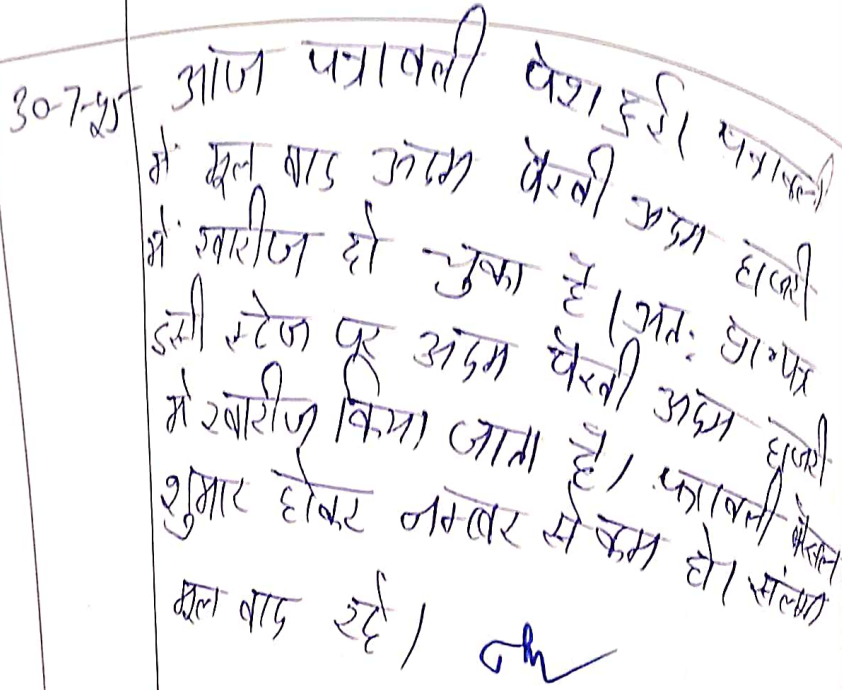 30-7-25 आज पत्रावली पेश हुई। पत्रावली
में मूल वाद अदम पैरवी अदम हाजरी
में खारीज हो चुका है। अतः प्रा०पत्र
इसी स्टेज पर अदम पैरवी अदम हाजरी
में खारीज किया जाता है। पत्रावली फैसल
शुमार होकर नम्बर से कम हो। संलग्न
मूल वाद रहे।